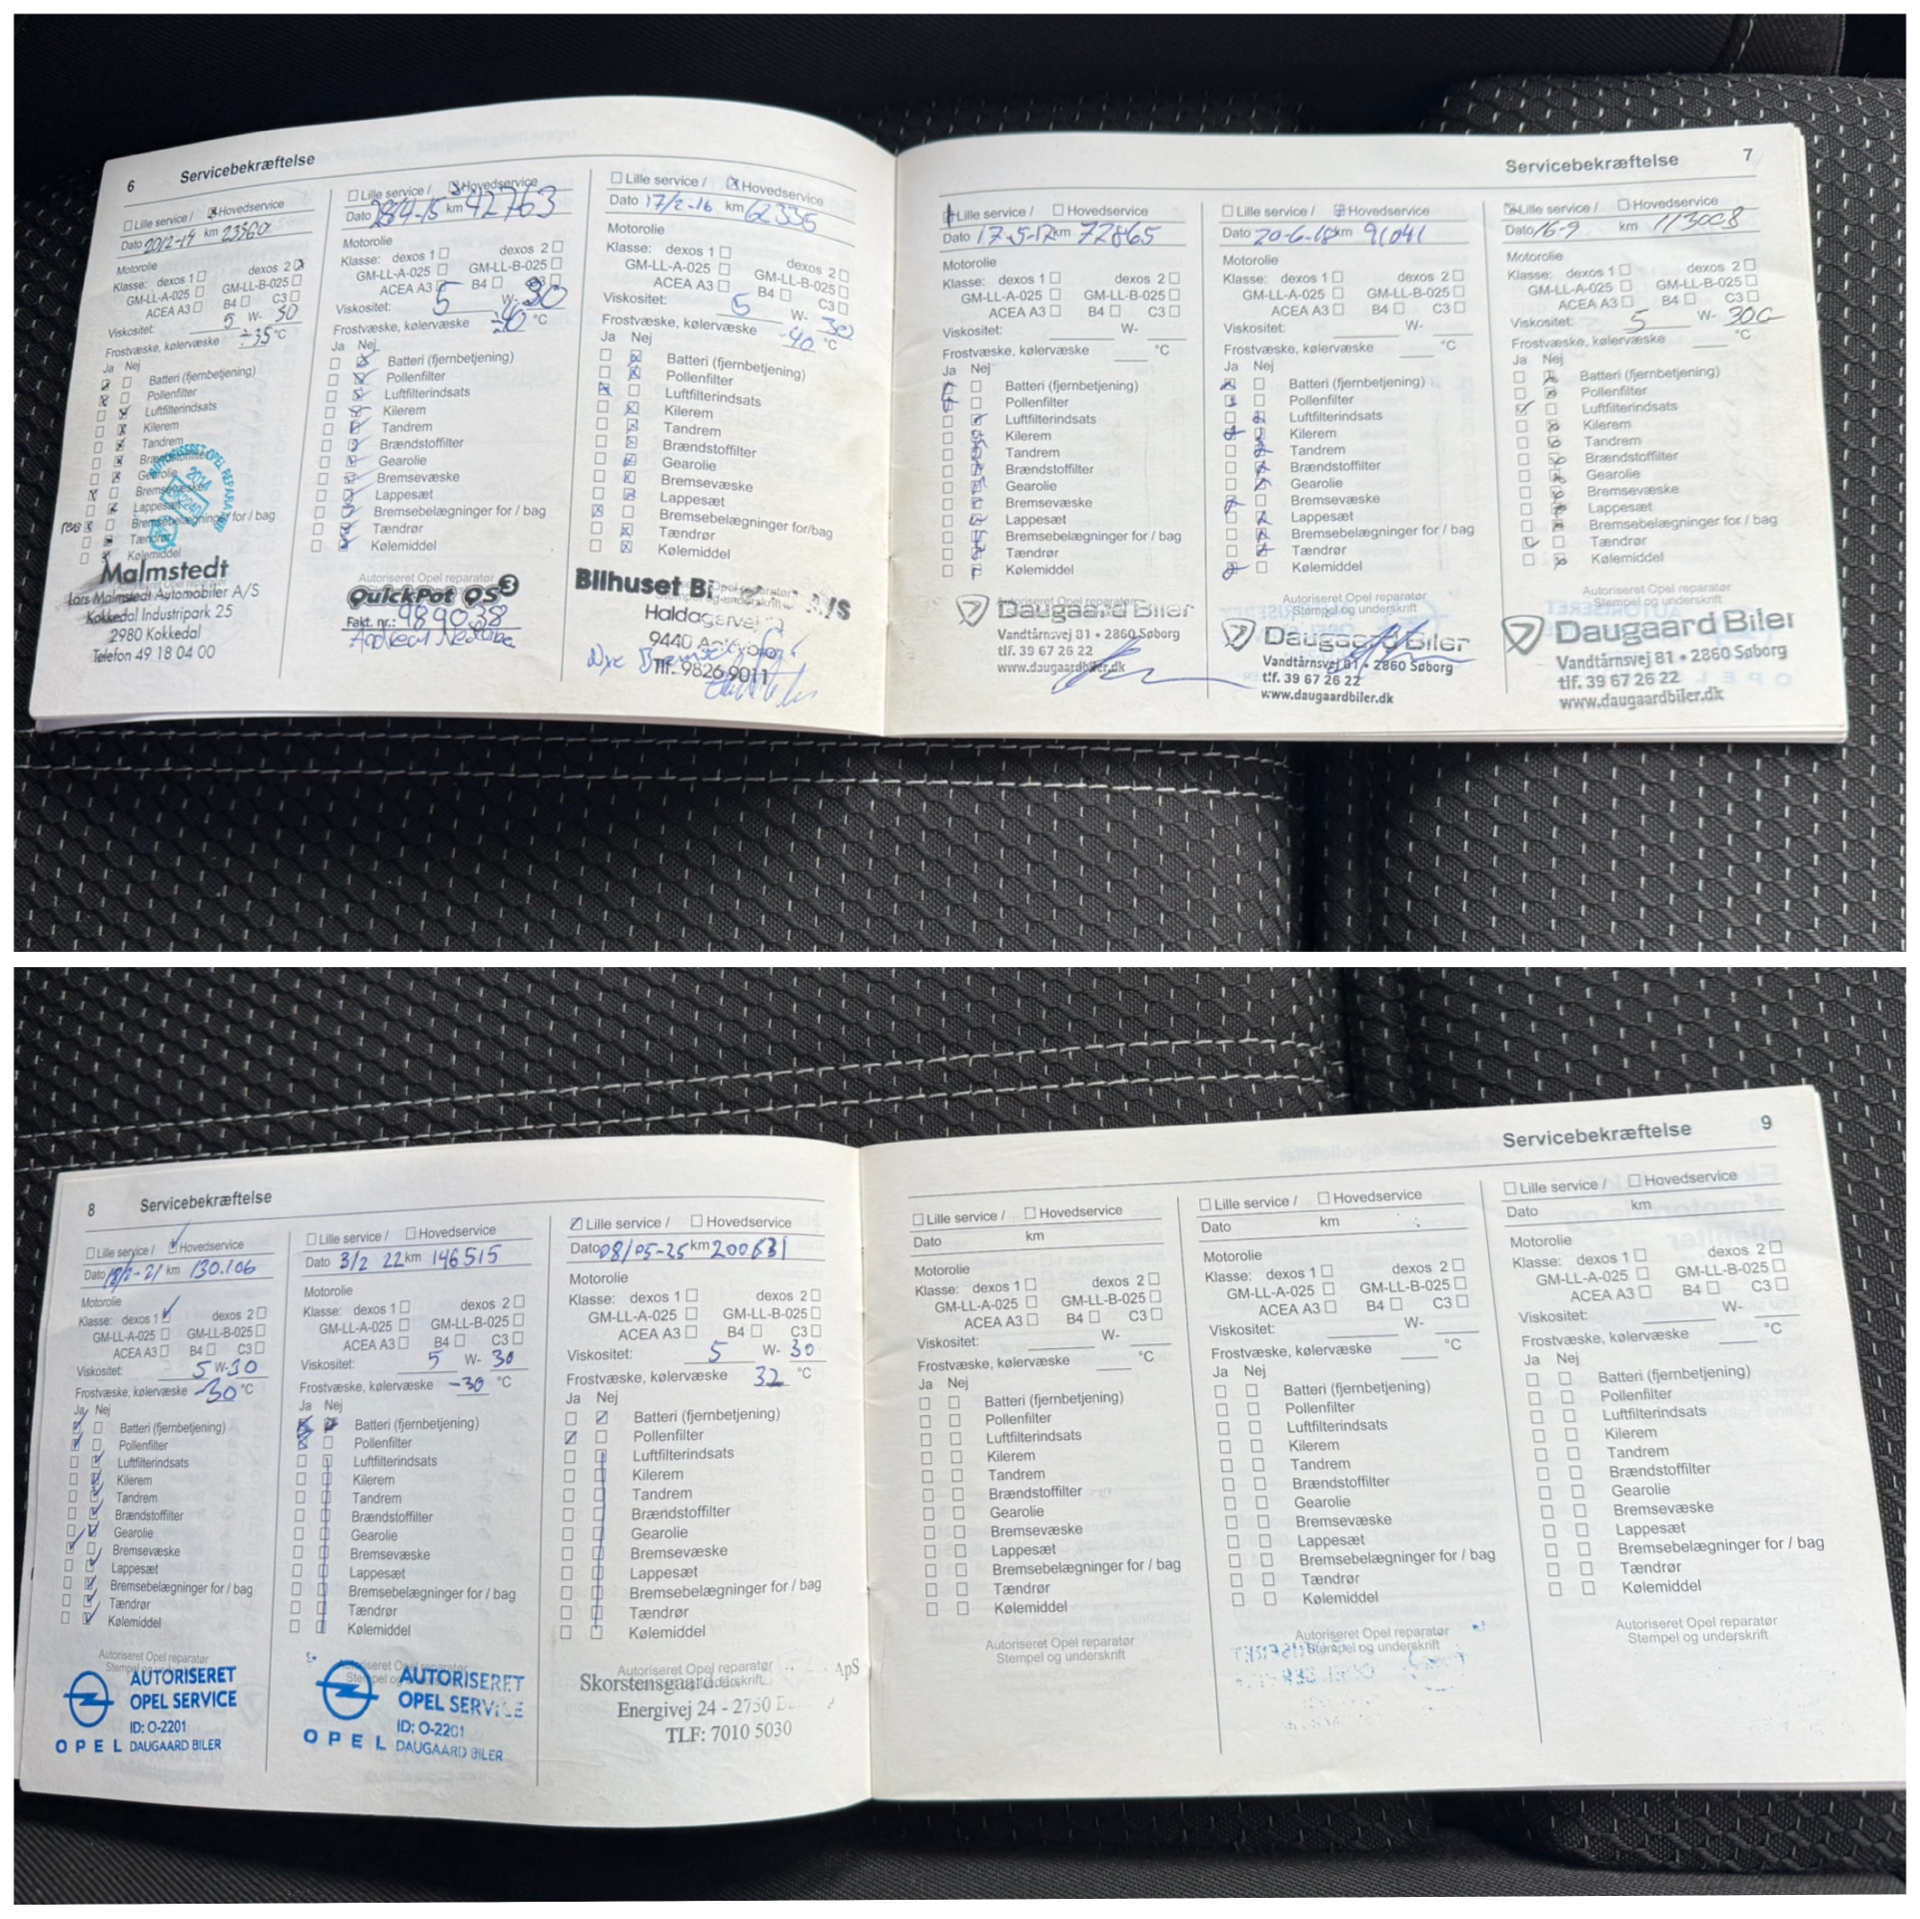 6 Servicebekræftelse
Lille service / Hovedservice
Dato 20/2-14 km 23560
Motorolie
Klasse: dexos 1 dexos 2
GM-LL-A-025 GM-LL-B-025
ACEA A3 B4 C3
Viskositet: 5 W- 30
Frostvæske, kølervæske -35 °C
Ja Nej
Batteri (fjernbetjening)
Pollenfilter
Luftfilterindsats
Kilerem
Tandrem
Brændstoffilter
Gearolie
Bremsevæske
Lappesæt
Bremsebelægninger for / bag
Tændrør
Kølemiddel
AUTORISERET OPEL REPARATØR
2014
Malmstedt
Lars Malmstedt Automobiler A/S
Kokkedal Industripark 25
2980 Kokkedal
Telefon 49 18 04 00
Lille service / Hovedservice
Dato 28/4-15 km 42763
Motorolie
Klasse: dexos 1 dexos 2
GM-LL-A-025 GM-LL-B-025
ACEA A3 B4 C3
Viskositet: 5 W- 30
Frostvæske, kølervæske -40 °C
Ja Nej
Batteri (fjernbetjening)
Pollenfilter
Luftfilterindsats
Kilerem
Tandrem
Brændstoffilter
Gearolie
Bremsevæske
Lappesæt
Bremsebelægninger for / bag
Tændrør
Kølemiddel
Autoriseret Opel reparatør
QuickPot QS3
Fakt. nr.: 989038
Lille service / Hovedservice
Dato 17/2-16 km 62335
Motorolie
Klasse: dexos 1 dexos 2
GM-LL-A-025 GM-LL-B-025
ACEA A3 B4 C3
Viskositet: 5 W- 30
Frostvæske, kølervæske -40 °C
Ja Nej
Batteri (fjernbetjening)
Pollenfilter
Luftfilterindsats
Kilerem
Tandrem
Brændstoffilter
Gearolie
Bremsevæske
Lappesæt
Bremsebelægninger for/bag
Tændrør
Kølemiddel
Bilhuset A/S
9440
Tlf. 9826 9011
Servicebekræftelse 7
Lille service / Hovedservice
Dato 17-5-17 km 72865
Motorolie
Klasse: dexos 1 dexos 2
GM-LL-A-025 GM-LL-B-025
ACEA A3 B4 C3
Viskositet: W-
Frostvæske, kølervæske °C
Ja Nej
Batteri (fjernbetjening)
Pollenfilter
Luftfilterindsats
Kilerem
Tandrem
Brændstoffilter
Gearolie
Bremsevæske
Lappesæt
Bremsebelægninger for / bag
Tændrør
Kølemiddel
Daugaard Biler
Vandtårnsvej 81 • 2860 Søborg
tlf. 39 67 26 22
www.daugaardbiler.dk
Lille service / Hovedservice
Dato 20-6-18 km 91041
Motorolie
Klasse: dexos 1 dexos 2
GM-LL-A-025 GM-LL-B-025
ACEA A3 B4 C3
Viskositet: W-
Frostvæske, kølervæske °C
Ja Nej
Batteri (fjernbetjening)
Pollenfilter
Luftfilterindsats
Kilerem
Tandrem
Brændstoffilter
Gearolie
Bremsevæske
Lappesæt
Bremsebelægninger for / bag
Tændrør
Kølemiddel
Autoriseret Opel reparatør
Stempel og underskrift
Daugaard Biler
Vandtårnsvej 81 • 2860 Søborg
tlf. 39 67 26 22
www.daugaardbiler.dk
Lille service / Hovedservice
Dato 16-9 km 113008
Motorolie
Klasse: dexos 1 dexos 2
GM-LL-A-025 GM-LL-B-025
ACEA A3 B4 C3
Viskositet: 5 W- 30
Frostvæske, kølervæske °C
Ja Nej
Batteri (fjernbetjening)
Pollenfilter
Luftfilterindsats
Kilerem
Tandrem
Brændstoffilter
Gearolie
Bremsevæske
Lappesæt
Bremsebelægninger for / bag
Tændrør
Kølemiddel
Autoriseret Opel reparatør
Stempel og underskrift
Daugaard Biler
Vandtårnsvej 81 • 2860 Søborg
tlf. 39 67 26 22
www.daugaardbiler.dk
8 Servicebekræftelse
Lille service / Hovedservice
Dato 18/2-21 km 130.106
Motorolie
Klasse: dexos 1 dexos 2
GM-LL-A-025 GM-LL-B-025
ACEA A3 B4 C3
Viskositet: 5 W- 30
Frostvæske, kølervæske -30 °C
Ja Nej
Batteri (fjernbetjening)
Pollenfilter
Luftfilterindsats
Kilerem
Tandrem
Brændstoffilter
Gearolie
Bremsevæske
Lappesæt
Bremsebelægninger for / bag
Tændrør
Kølemiddel
Autoriseret Opel reparatør
AUTORISERET
OPEL SERVICE
ID: O-2201
OPEL DAUGAARD BILER
Lille service / Hovedservice
Dato 3/2 22 km 146515
Motorolie
Klasse: dexos 1 dexos 2
GM-LL-A-025 GM-LL-B-025
ACEA A3 B4 C3
Viskositet: 5 W- 30
Frostvæske, kølervæske -30 °C
Ja Nej
Batteri (fjernbetjening)
Pollenfilter
Luftfilterindsats
Kilerem
Tandrem
Brændstoffilter
Gearolie
Bremsevæske
Lappesæt
Bremsebelægninger for / bag
Tændrør
Kølemiddel
AUTORISERET
OPEL SERVICE
ID: O-2201
OPEL DAUGAARD BILER
Lille service / Hovedservice
Dato 08/05-25 km 200631
Motorolie
Klasse: dexos 1 dexos 2
GM-LL-A-025 GM-LL-B-025
ACEA A3 B4 C3
Viskositet: 5 W- 30
Frostvæske, kølervæske 32 °C
Ja Nej
Batteri (fjernbetjening)
Pollenfilter
Luftfilterindsats
Kilerem
Tandrem
Brændstoffilter
Gearolie
Bremsevæske
Lappesæt
Bremsebelægninger for / bag
Tændrør
Kølemiddel
Autoriseret Opel reparatør
Skorstensgaard ApS
Energivej 24 - 2750
TLF: 7010 5030
Servicebekræftelse 9
Lille service / Hovedservice
Dato km
Motorolie
Klasse: dexos 1 dexos 2
GM-LL-A-025 GM-LL-B-025
ACEA A3 B4 C3
Viskositet: W-
Frostvæske, kølervæske °C
Ja Nej
Batteri (fjernbetjening)
Pollenfilter
Luftfilterindsats
Kilerem
Tandrem
Brændstoffilter
Gearolie
Bremsevæske
Lappesæt
Bremsebelægninger for / bag
Tændrør
Kølemiddel
Autoriseret Opel reparatør
Stempel og underskrift
Lille service / Hovedservice
Dato km
Motorolie
Klasse: dexos 1 dexos 2
GM-LL-A-025 GM-LL-B-025
ACEA A3 B4 C3
Viskositet: W-
Frostvæske, kølervæske °C
Ja Nej
Batteri (fjernbetjening)
Pollenfilter
Luftfilterindsats
Kilerem
Tandrem
Brændstoffilter
Gearolie
Bremsevæske
Lappesæt
Bremsebelægninger for / bag
Tændrør
Kølemiddel
Autoriseret Opel reparatør
Stempel og underskrift
Lille service / Hovedservice
Dato km
Motorolie
Klasse: dexos 1 dexos 2
GM-LL-A-025 GM-LL-B-025
ACEA A3 B4 C3
Viskositet: W-
Frostvæske, kølervæske °C
Ja Nej
Batteri (fjernbetjening)
Pollenfilter
Luftfilterindsats
Kilerem
Tandrem
Brændstoffilter
Gearolie
Bremsevæske
Lappesæt
Bremsebelægninger for / bag
Tændrør
Kølemiddel
Autoriseret Opel reparatør
Stempel og underskrift